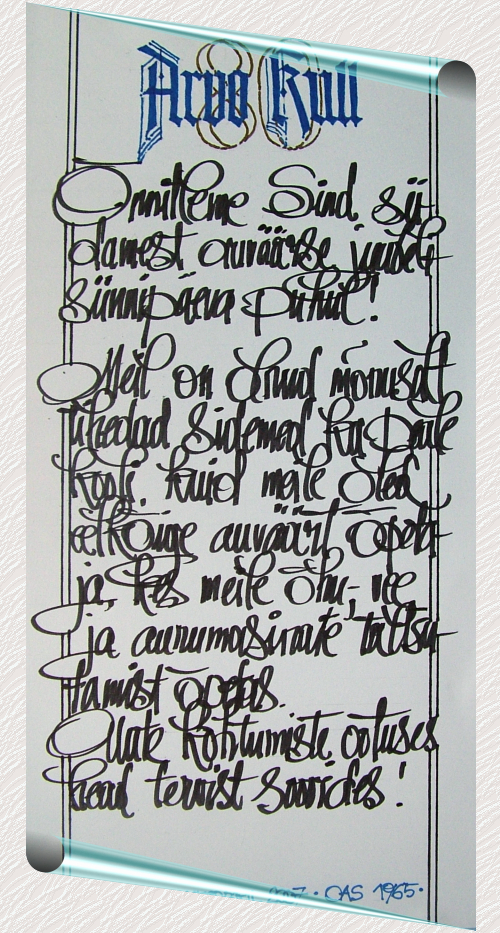 80
Arvo Kull
Õnnitleme Sind sü-
damest auväärse juubeli
sünnipäeva puhul!
Meil on olnud mõnusalt
tihedad sidemed ka peale
kooli, kuid meile oled
eelkõige auväärt õpeta-
ja, kes meile õhu-, vee
ja aurumasinate taltsu-
tamist õpetas.
Uute kohtumiste ootuses
head tervist soovides!
· OAS 1965 ·